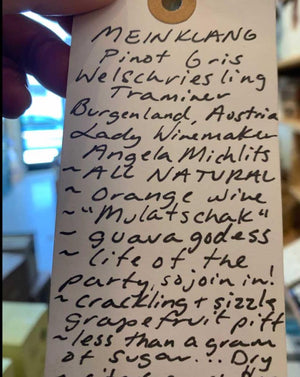 MEINKLANG
Pinot Gris
Welschriesling
Traminer
Burgenland, Austria
Lady Winemaker
Angela Michlits
~ ALL NATURAL
~ Orange wine
~ "Mulatschak"
~ guava godess
~ life of the
party, so join in!
~ crackling + sizzle
grapefruit pith
~ less than a gram
of sugar... Dry